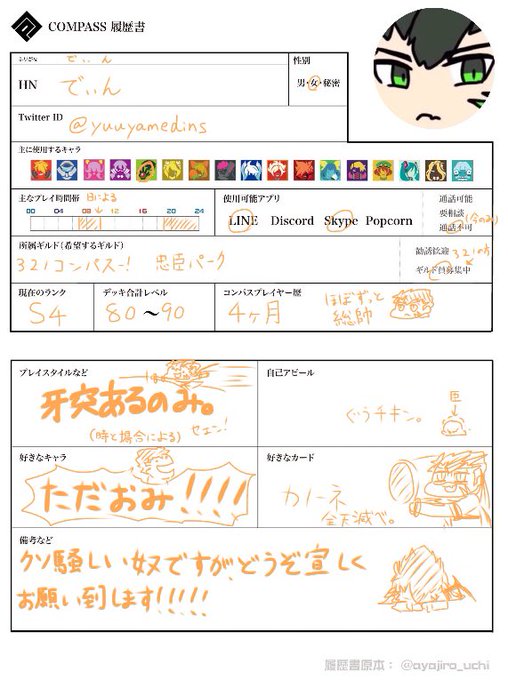 COMPASS 履歴書
ふりがな でぃん
HN でぃん
性別
男・女・秘密
Twitter ID @yuuyamedins
主に使用するキャラ
主なプレイ時間帯 日による
00 04 08 12 16 20 24
使用可能アプリ
LINE Discord Skype Popcorn
通話可能
要相談
通話不可 (今のみ)
所属ギルド(希望するギルド)
321コンパスー! 忠臣パーク
勧誘歓迎 321の方
ギルド員募集中
現在のランク
S4
デッキ合計レベル
80〜90
コンパスプレイヤー歴
4ヶ月
ほぼずっと
総帥
プレイスタイルなど
牙突あるのみ。
(時と場合による)
自己アピール
ぐうチキン。
巨
↓
好きなキャラ
ただおみ!!!!
好きなカード
カノーネ
全天滅べ。
備考など
クソ騒しい奴ですが、どうぞ宜しく
お願い到します!!!!!
履歴書原本: @ayajiro_uchi